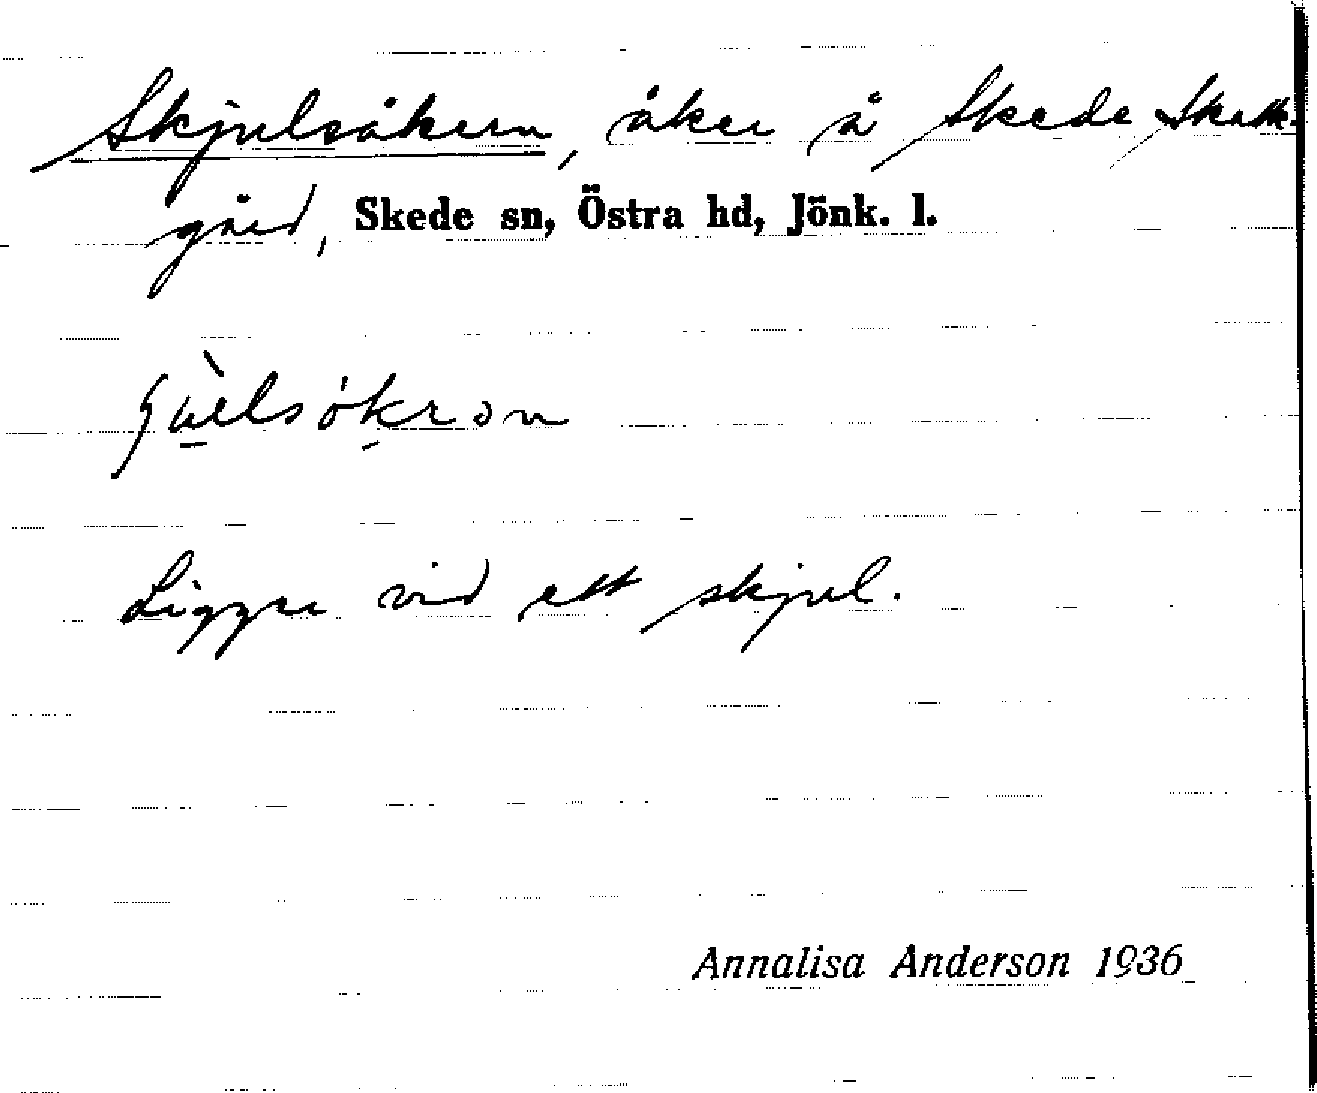 Skjulsåkern, åker å Skede Skatte-
gård, Skede sn, Östra hd, Jönk. l.
Ligger vid ett skjul.
Annalisa Anderson 1936